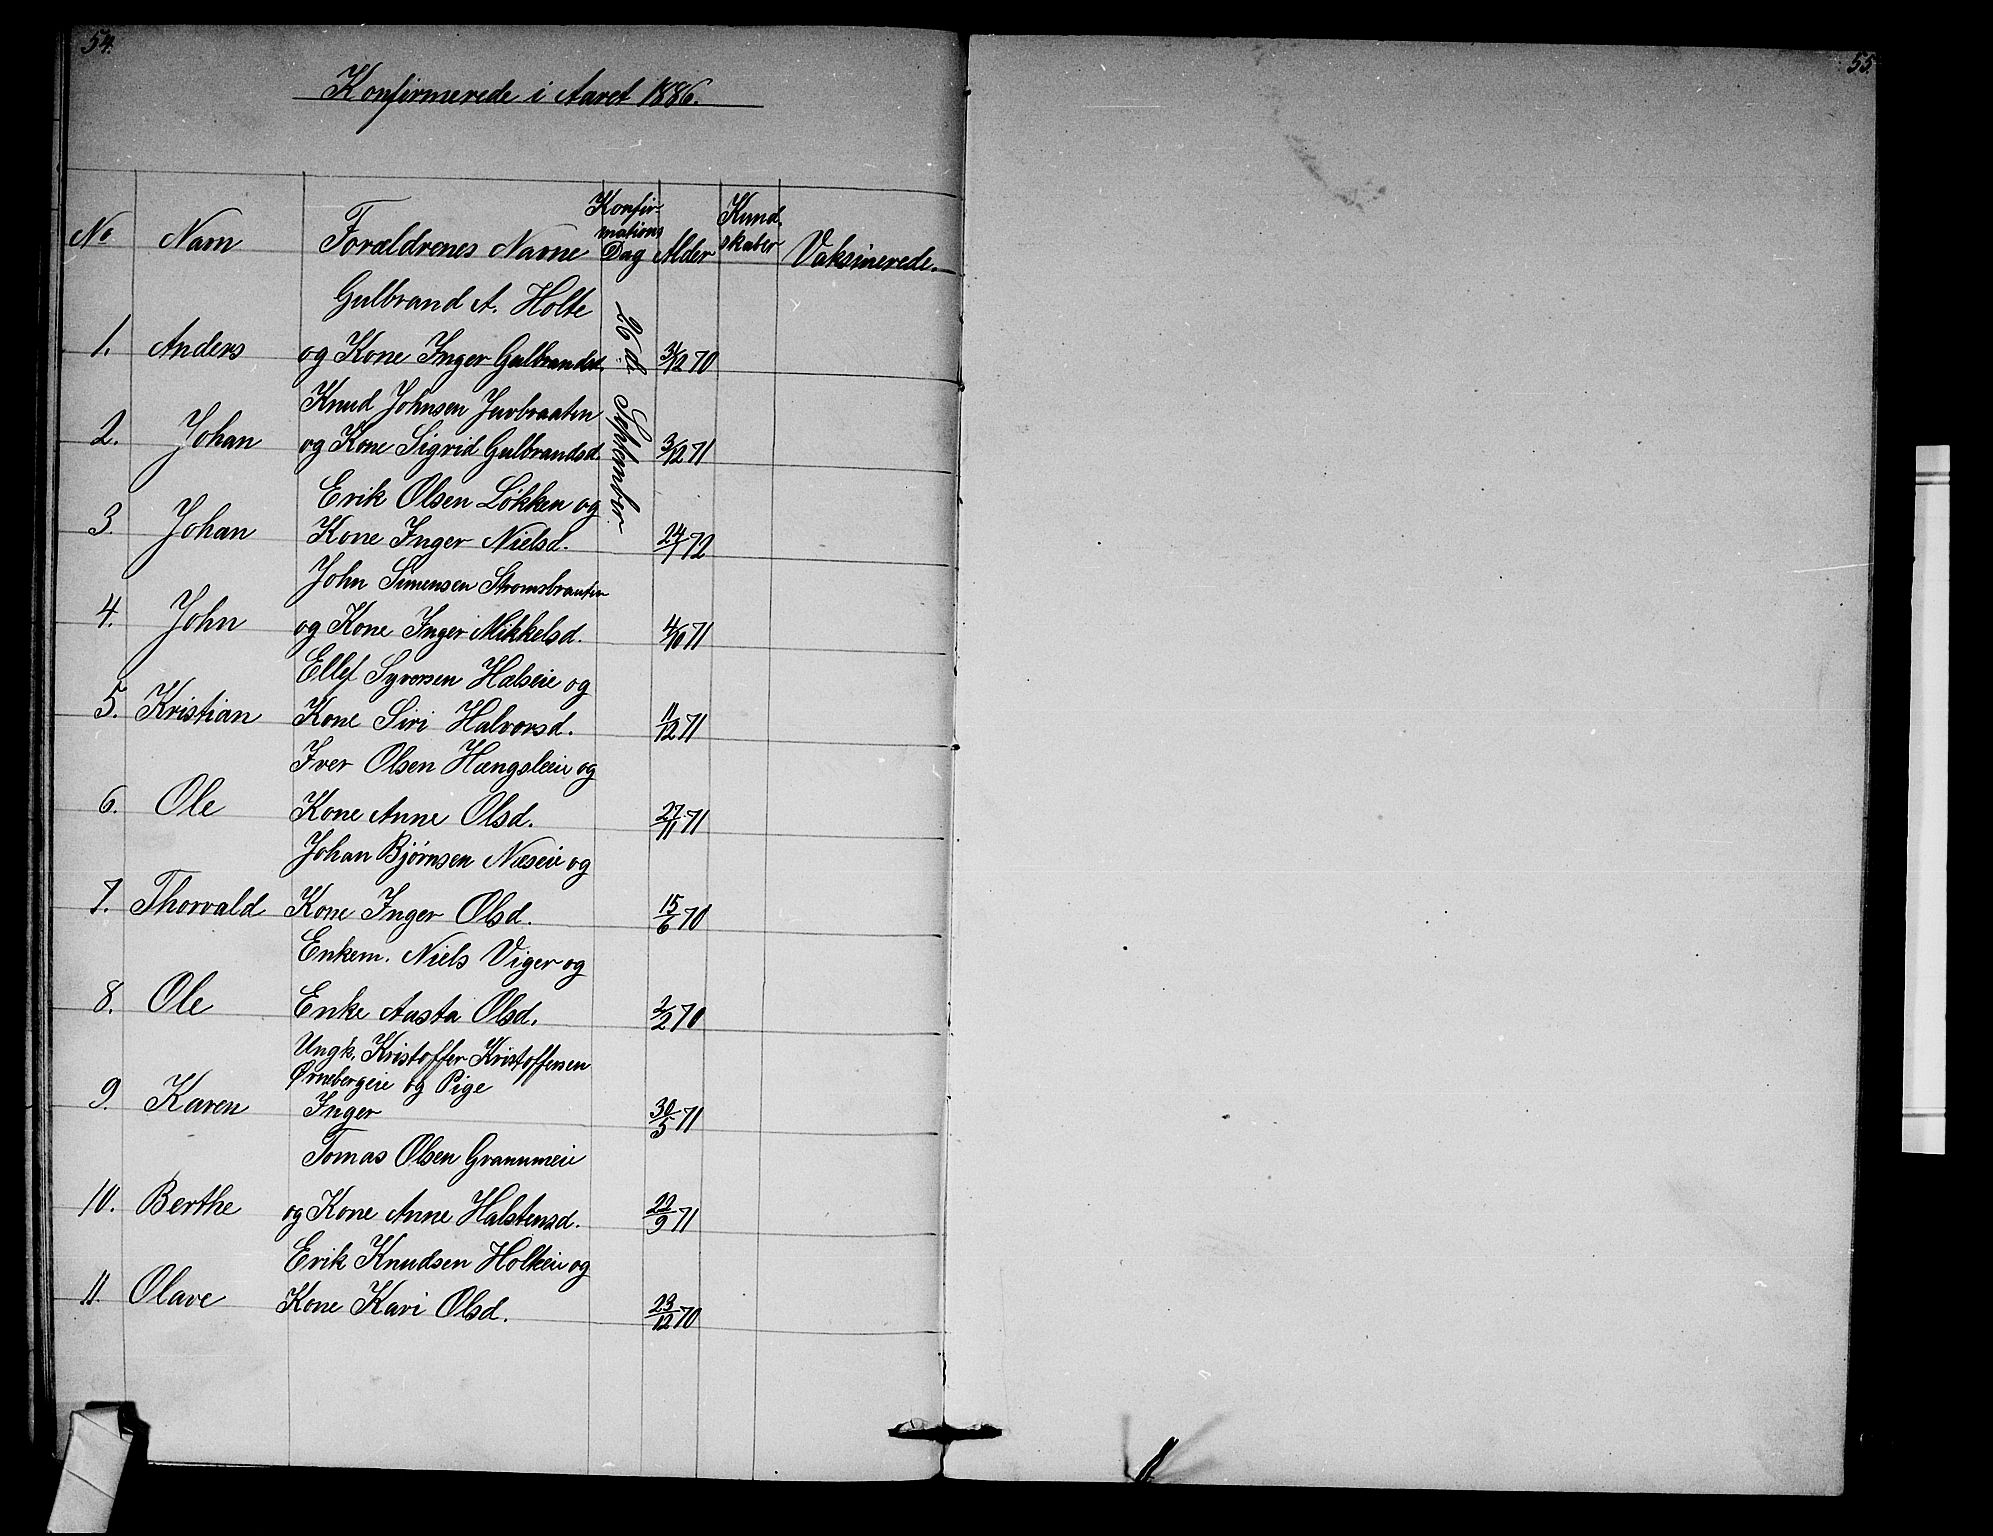 54.
55.
Konfirmerede i Aaret 1886.
No Navn Forældrenes Navne Konfir-
mations
Dag Alder Kund
skaber Vaksinerede.
26 de September
Gulbrand A. Holte
1. Anders og Kone Inger Gulbrandsd. 31/12 70
Knud Johnsen
2. Johan og Kone Sigrid Gulbrandsd. 3/12 71
Erik Olsen Løkken og
3. Johan Kone Inger Nielsd. 24/1 72
John Simensen Strømsbraaten
4. John og Kone Inger Mikkelsd. 4/10 71
Ellef Syversen Halseie og
5. Kristian Kone Siri Halvorsd. 11/12 71
Iver Olsen Hængsleie og
6. Ole Kone Anne Olsd. 27/11 71
Johan Bjørnsen Næseie og
7. Thorvald Kone Inger Olsd. 15/6 70
Enkem. Niels Viger og
8. Ole Enke Aasta Olsd. 2/2 70
Ungk. Kristoffer Kristoffersen
Ørnebergeie og Pige
9. Karen Inger 30/5 71
Tomas Olsen Granumeie
10. Berthe og Kone Anne Halstensd. 22/9 71
Erik Knudsen Holteie og
11. Olave Kone Kari Olsd. 23/12 70